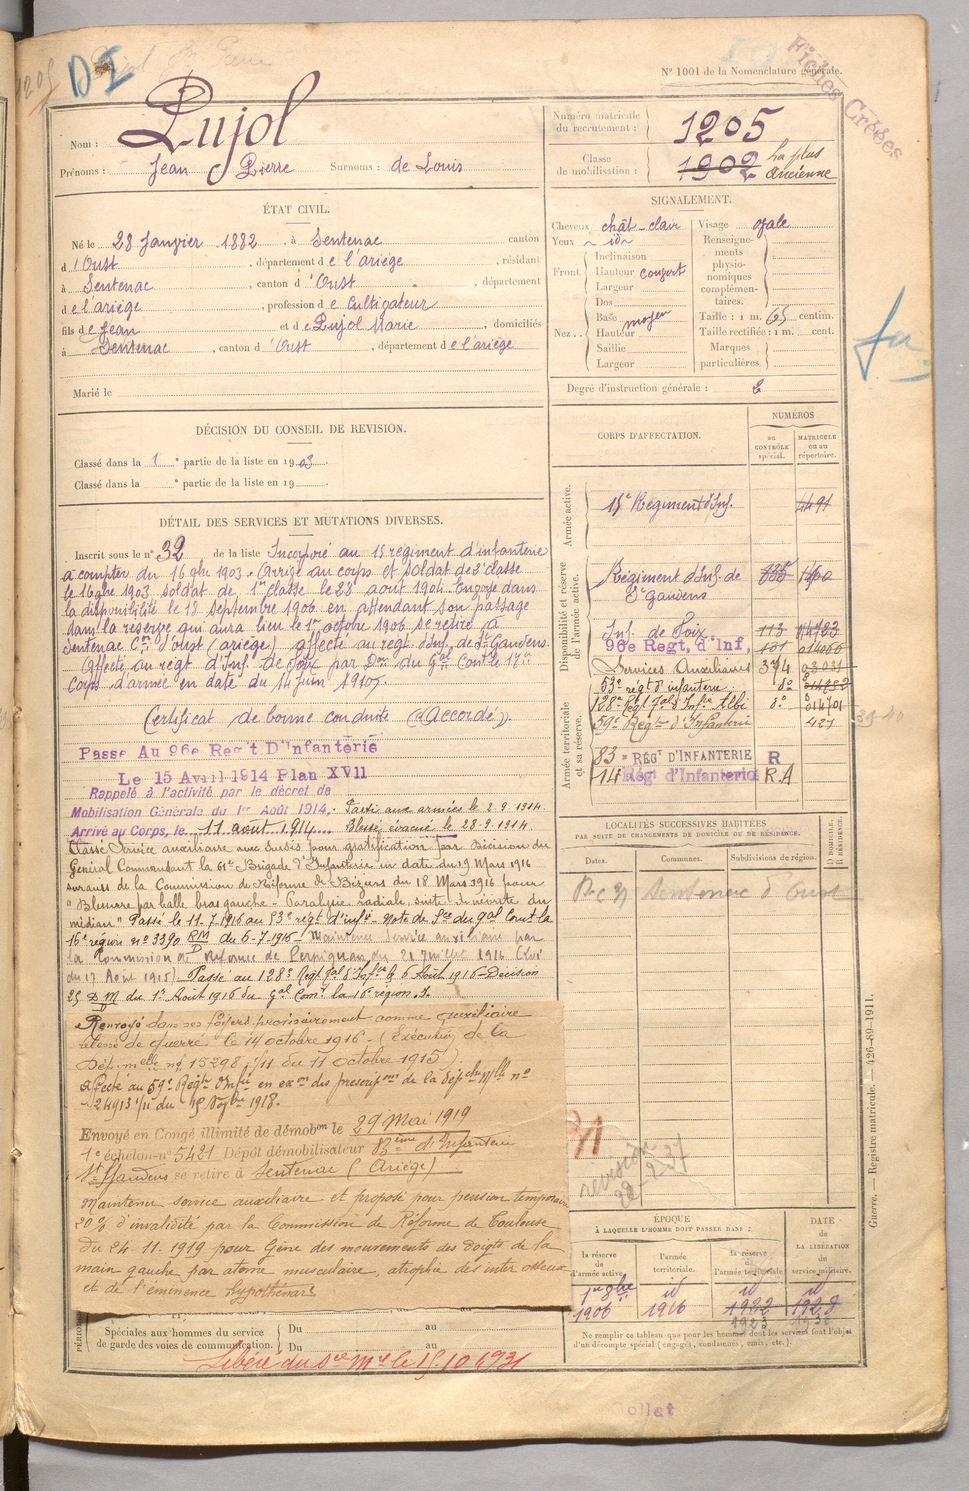 D I
N° 1001 de la Nomenclature générale.
Fiches Créées
Nom : Pujol
Prénoms : Jean Pierre Surnoms : de Louis
Numéro matricule du recrutement : 1205
Classe de mobilisation : 1902 La plus ancienne
ÉTAT CIVIL.
Né le 28 Janvier 1882, à Sentenac canton
d'Oust, département de l'ariège, résidant
à Sentenac, canton d'Oust, département
de l'ariège, profession de Cultivateur
fils de Jean et de Pujol Marie, domiciliés
à Sentenac, canton d'Oust, département de l'ariège
Marié le
SIGNALEMENT.
Cheveux chât-clair
Yeux id
Front. Inclinaison
Hauteur couvert
Largeur
Nez. Dos
Base moyen
Hauteur
Saillie
Largeur
Visage ovale
Renseignements physionomiques complémentaires.
Taille : 1 m. 65 centim.
Taille rectifiée : 1 m. cent.
Marques particulières.
Degré d'instruction générale : 2
DÉCISION DU CONSEIL DE REVISION.
Classé dans la 1e partie de la liste en 1903.
Classé dans la e partie de la liste en 19
DÉTAIL DES SERVICES ET MUTATIONS DIVERSES.
Inscrit sous le n° 32 de la liste Incorporé au 15 régiment d'infanterie
à compter du 16 9bre 1903. Arrivé au corps et soldat de 2e classe
le 16 9bre 1903. soldat de 1re classe le 23 août 1904. Envoyé dans
la disponibilité le 18 septembre 1906 en attendant son passage
dans la réserve qui aura lieu le 1er octobre 1906 se retire à
Sentenac Con d'oust (ariège) affecté au régt d'Inf. de St Gaudens.
Affecté au régt d'Inf. de Foix par Don du Gal Comt le 17e
Corps d'armée en date du 14 Juin 1907.
Certificat de bonne conduite "Accordé".
Passe Au 96e Regt D'Infanterie
Le 15 Avril 1914 Plan XVII
Rappelé à l'activité par le décret de
Mobilisation Générale du 1er Août 1914. Parti aux armées le 2.9.1914.
Arrivé au Corps, le 11 aout 1914 Blessé évacué le 28.9.1914.
Classé Service auxiliaire avec sursis pour gratification par Décision du
Général Commandant la 61e Brigade d'Infanterie en date du 19 Mars 1916
sur avis de la Commission de Réforme de Béziers du 18 Mars 1916 pour
"Blessure par balle bras gauche - Paralysie radiale, suite de névrite du
médian" Passé le 11.7.1916 au 53e régt d'infie - Note de Sce du gal Comt la
16e région n° 3390 RM du 6-7-1916 - Maintenu service auxiliaire par
la Commission de Réforme de Perpignan du 21 Juillet 1916 (Loi
du 17 Août 1915). Passé au 128e Régt gal d'Infie le 6 Août 1916 - Décision
du 1er Août 1916 du Gal Comt la 16e région.
Renvoyé dans ses foyers provisoirement comme auxiliaire
blessé de guerre le 14 octobre 1916 - (Exécution de la
Dép. melle n° 15298 1/11 du 11 octobre 1915).
affecté au 59e Régt d'Infie en exon des prescripons de la dépche Mlle n°
24913 1/11 du 15 Sepbre 1918.
Envoyé en Congé illimité de démobon le 29 Mai 1919
1e échelon n° 5421 Dépôt démobilisateur 83ème d'Infanterie
St Gaudens se retire à Sentenac (Ariège)
Maintenu service auxiliaire et proposé pour pension temporaire
20% d'invalidité par la Commission de Réforme de Toulouse
du 24-11-1919 pour gêne des mouvements des doigts de la
main gauche par atonie musculaire, atrophie des inter osseux
et de l'éminence hypothénar
Spéciales aux hommes du service de garde des voies de communication.
Du au
Du au
Libéré du sce Mre le 15.10.1931
CORPS D'AFFECTATION.
NUMÉROS
au CONTRÔLE spécial.
MATRICULE ou au répertoire.
Armée active.
15e Régiment d'Inf. 4491
Disponibilité et réserve de l'armée active.
Régiment d'Inf. de St Gaudens
Inf. de Foix 113
96e Regt, d'Inf, 101
Services Auxiliaires 374
53e régt d'infanterie
128e Régt gal d'Infie Albi
59e Régt d'Infanterie 427
Armée territoriale et sa réserve.
83e RÉGt D'INFANTERIE R
14 Régt d'Infanterie R.A
LOCALITÉS SUCCESSIVES HABITÉES
PAR SUITE DE CHANGEMENTS DE DOMICILE OU DE RÉSIDENCE.
Dates. Communes. Subdivisions de région.
D DOMICILE. R RÉSIDENCE.
Sentenac d'Oust
révision
22-2-37
ÉPOQUE
À LAQUELLE L'HOMME DOIT PASSER DANS :
la réserve de l'armée active.
l'armée territoriale.
la réserve de l'armée territoriale.
DATE DE LA LIBÉRATION du service militaire.
1er 8bre id id id
1906 1916 1922 1928
Ne remplir ce tableau que pour les hommes dont les services font l'objet
d'un décompte spécial (engagés, condamnés, omis, etc.).
Guerre. — Registre matricule. — 426-89-1911.